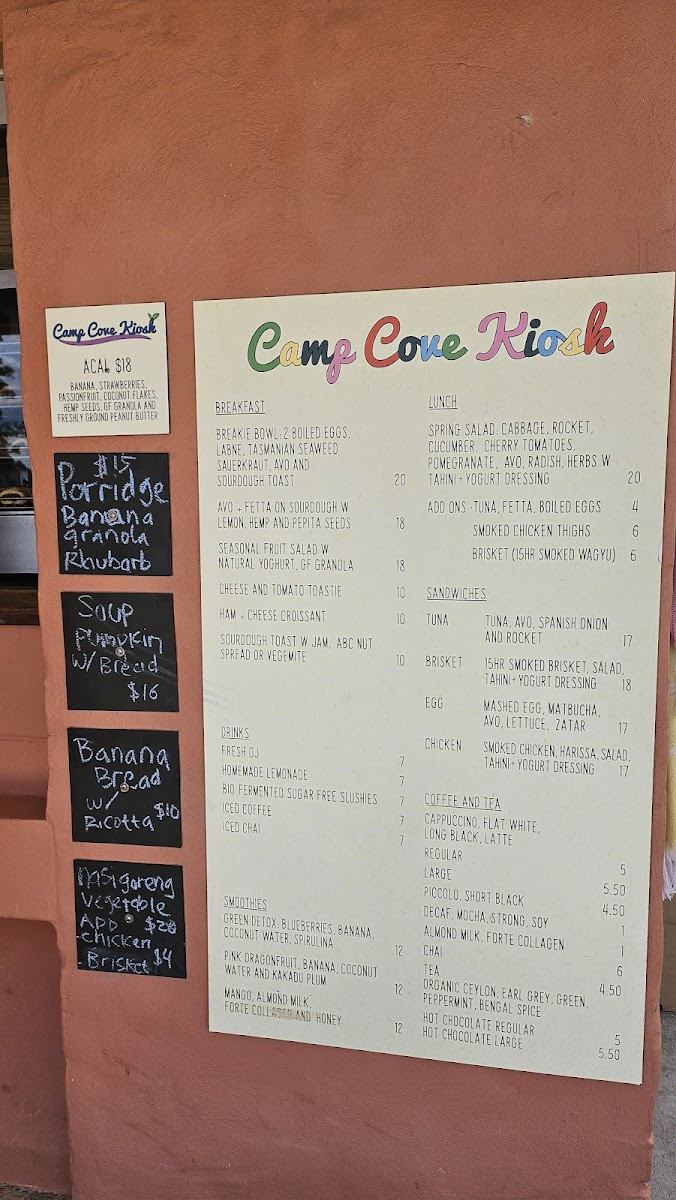 Camp Cove Kiosk
ACAI $18
BANANA, STRAWBERRIES,
PASSIONFRUIT, COCONUT FLAKES,
HEMP SEEDS, GF GRANOLA AND
FRESHLY GROUND PEANUT BUTTER
$15
Porridge
Banana
granola
Rhubarb
Soup
Pumpkin
W/ Bread
$16
Banana
Bread
W/ $10
Ricotta
nasi goreng
Vegetable
ADD $20
-chicken
-Brisket $4
Camp Cove Kiosk
BREAKFAST
BREAKIE BOWL: 2 BOILED EGGS,
LABNE, TASMANIAN SEAWEED
SAUERKRAUT, AVO AND
SOURDOUGH TOAST 20
AVO + FETTA ON SOURDOUGH W
LEMON, HEMP AND PEPITA SEEDS 18
SEASONAL FRUIT SALAD W
NATURAL YOGHURT, GF GRANOLA 18
CHEESE AND TOMATO TOASTIE 10
HAM + CHEESE CROISSANT 10
SOURDOUGH TOAST W JAM, ABC NUT
SPREAD OR VEGEMITE 10
DRINKS
FRESH OJ 7
HOMEMADE LEMONADE 7
BIO FERMENTED SUGAR FREE SLUSHIES 7
ICED COFFEE 7
ICED CHAI 7
SMOOTHIES
GREEN DETOX: BLUEBERRIES, BANANA,
COCONUT WATER, SPIRULINA 12
PINK DRAGONFRUIT, BANANA, COCONUT
WATER AND KAKADU PLUM 12
MANGO, ALMOND MILK,
FORTE COLLAGEN AND HONEY 12
LUNCH
SPRING SALAD: CABBAGE, ROCKET,
CUCUMBER, CHERRY TOMATOES,
POMEGRANATE, AVO, RADISH, HERBS W
TAHINI + YOGURT DRESSING 20
ADD ONS -TUNA, FETTA, BOILED EGGS 4
SMOKED CHICKEN THIGHS 6
BRISKET (15HR SMOKED WAGYU) 6
SANDWICHES
TUNA TUNA, AVO, SPANISH ONION
AND ROCKET 17
BRISKET 15HR SMOKED BRISKET, SALAD,
TAHINI+YOGURT DRESSING 18
EGG MASHED EGG, MATBUCHA,
AVO, LETTUCE, ZATAR 17
CHICKEN SMOKED CHICKEN, HARISSA, SALAD,
TAHINI+YOGURT DRESSING 17
COFFEE AND TEA
CAPPUCCINO, FLAT WHITE,
LONG BLACK, LATTE
REGULAR 5
LARGE 5.50
PICCOLO, SHORT BLACK 4.50
DECAF, MOCHA, STRONG, SOY 1
ALMOND MILK, FORTE COLLAGEN 1
CHAI 6
TEA 4.50
ORGANIC CEYLON, EARL GREY, GREEN,
PEPPERMINT, BENGAL SPICE
HOT CHOCOLATE REGULAR 5
HOT CHOCOLATE LARGE 5.50